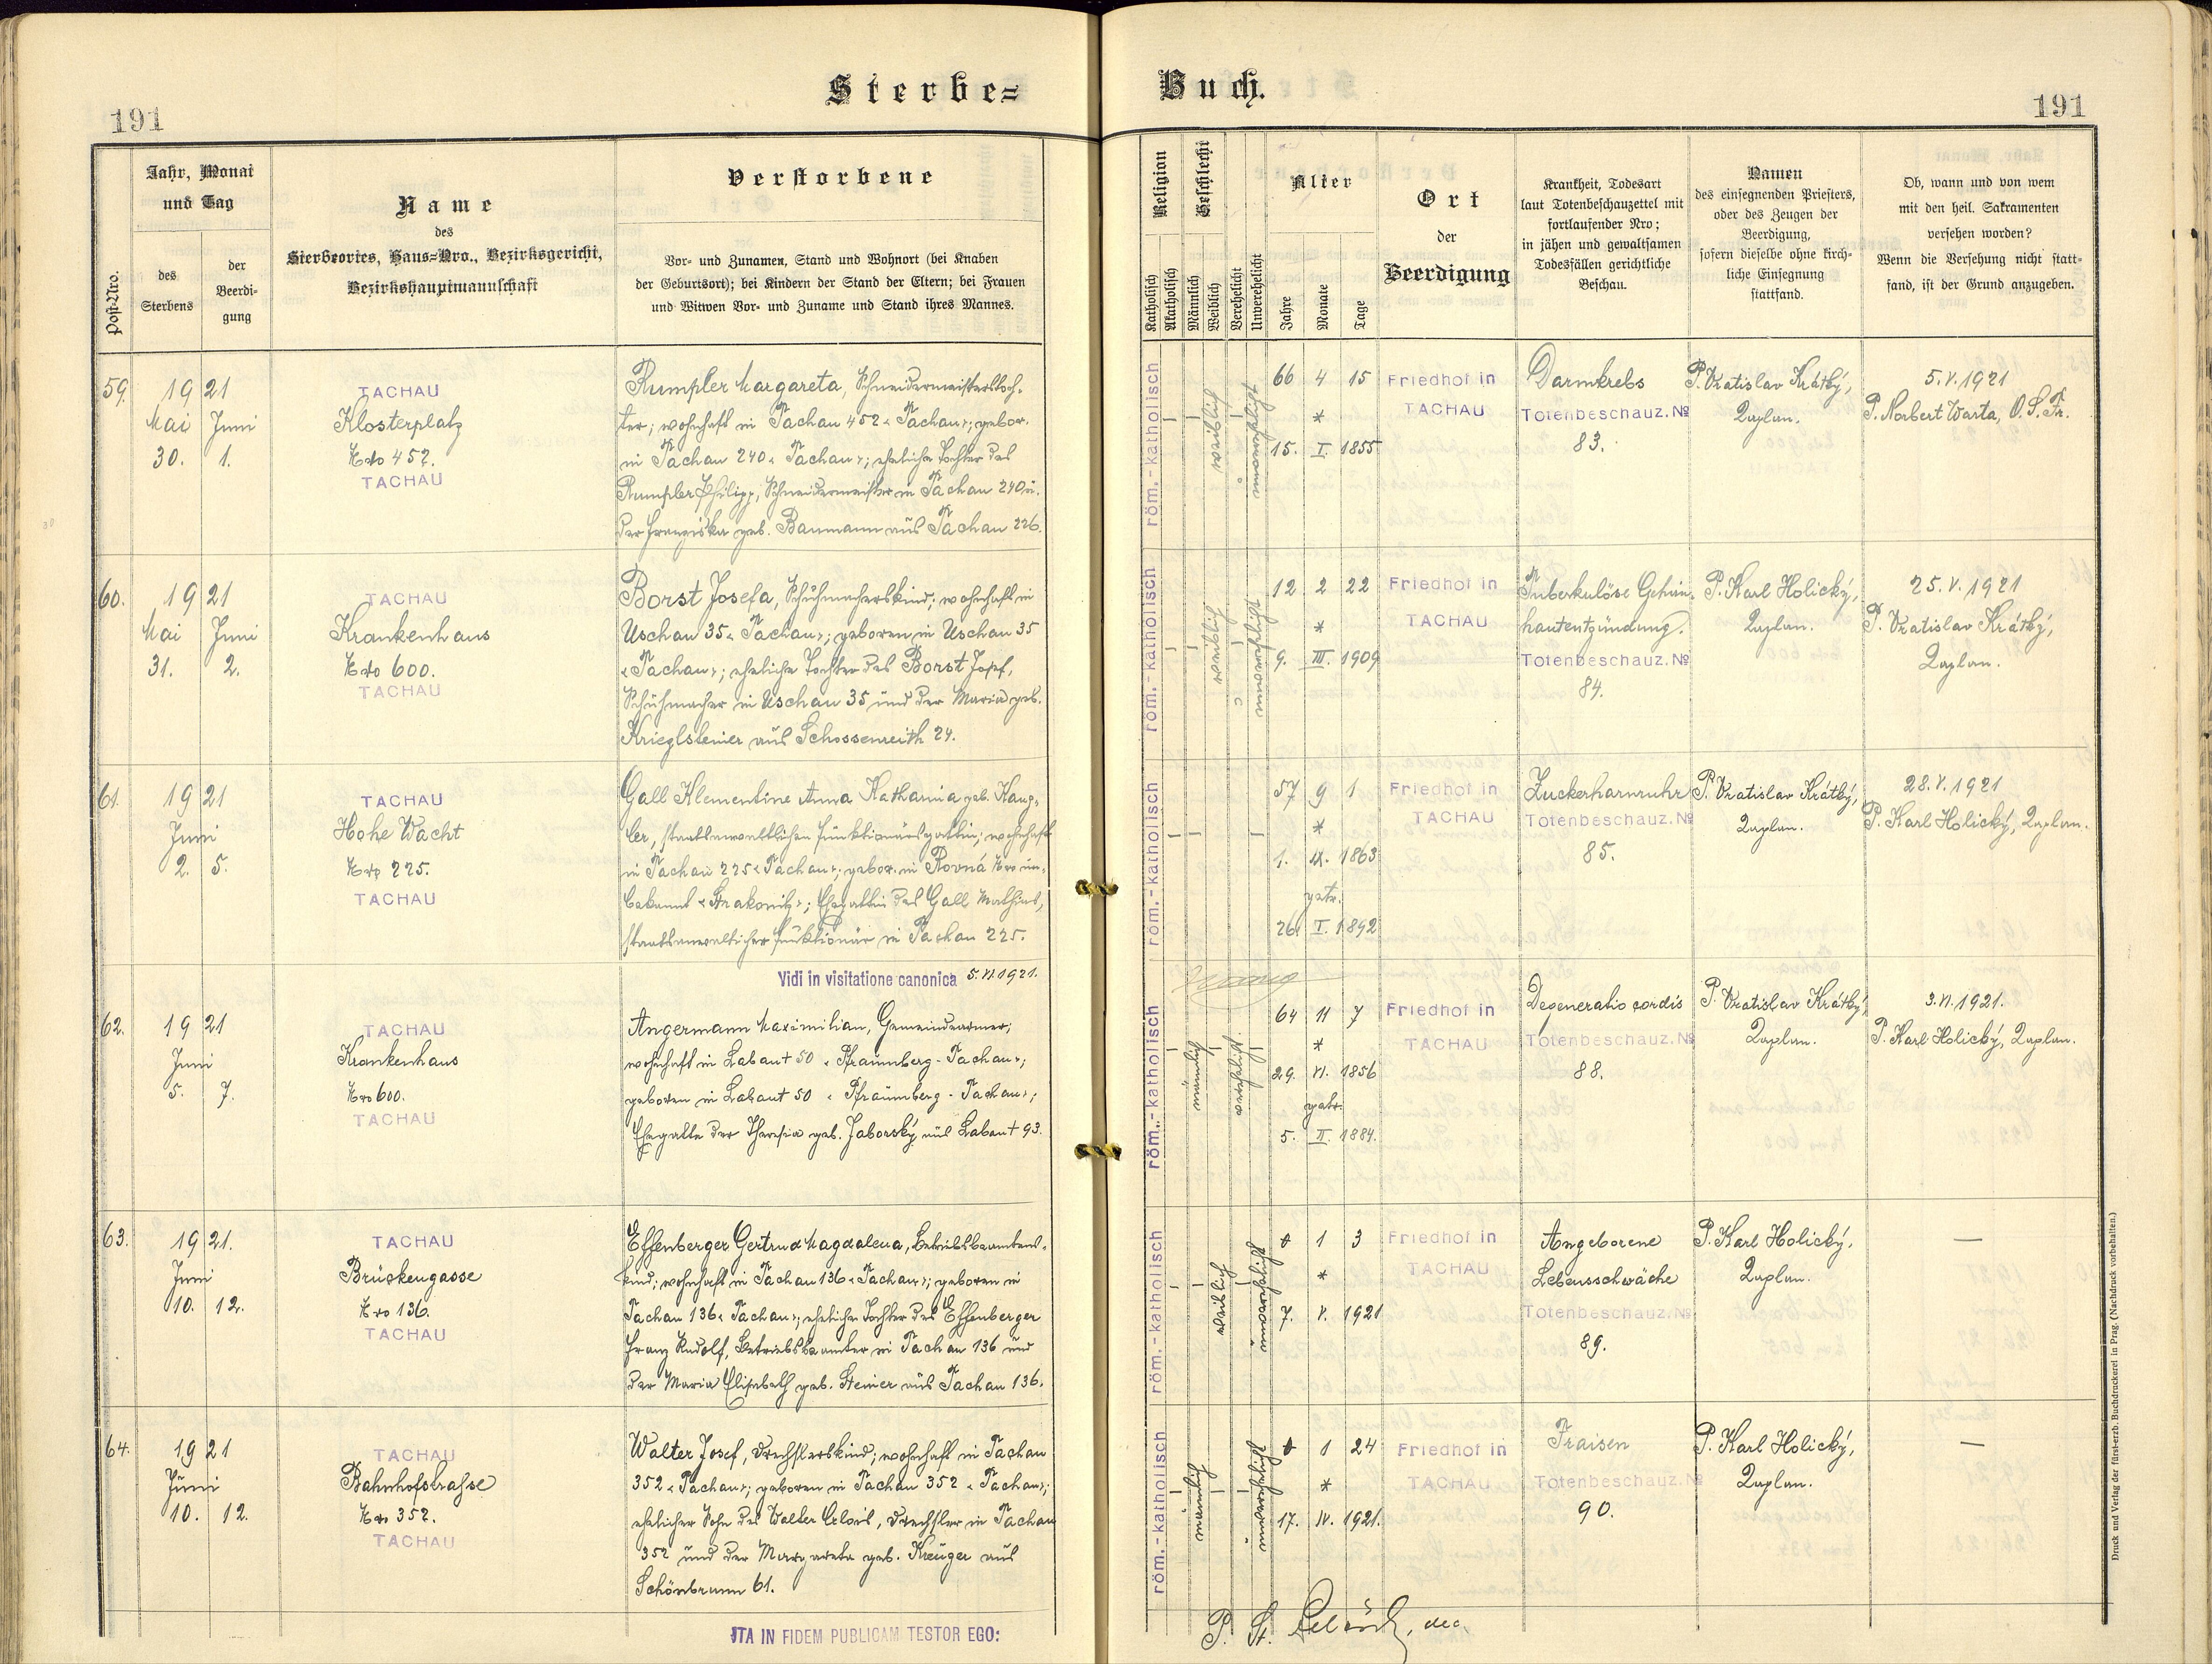 Sterbe=
Buch.
191
191
Post-Nro.
Jahr, Monat
und Tag
des
Sterbens
der
Beerdi-
gung
Name
des
Sterbeortes, Haus=Nro., Bezirksgericht,
Bezirkshauptmannschaft
Verstorbene
Vor- und Zunamen, Stand und Wohnort (bei Knaben
der Geburtsort); bei Kindern der Stand der Eltern; bei Frauen
und Witwen Vor- und Zuname und Stand ihres Mannes.
Religion
Katholisch
Akatholisch
Geschlecht
Männlich
Weiblich
Verehelicht
Unverehelicht
Alter
Jahre
Monate
Tage
Ort
der
Beerdigung
Krankheit, Todesart
laut Totenbeschauzettel mit
fortlaufender Nro;
in jähen und gewaltsamen
Todesfällen gerichtliche
Beschau.
Namen
des einsegnenden Priesters,
oder des Zeugen der
Beerdigung,
sofern dieselbe ohne kirch-
liche Einsegnung
stattfand.
Ob, wann und von wem
mit den heil. Sakramenten
versehen worden?
Wenn die Versehung nicht statt-
fand, ist der Grund anzugeben.
59.
1921
Mai Juni
30. 1.
TACHAU
Klosterplatz
Nro 452.
TACHAU
Rumpler Margareta, Schneidermeisterstoch-
ter; wohnhaft in Tachau 452 "Tachau"; gebor.
in Tachau 240 "Tachau"; eheliche Tochter des
Rumpler Philipp, Schneidermeister in Tachau 240 u.
der Franziska geb. Baumann aus Tachau 226.
röm.-katholisch
weiblich
unverehelicht
66 4 15
*
15. I. 1855
Friedhof in
TACHAU
Darmkrebs
Totenbeschauz. No
83.
P. Vratislav Krátký,
Kaplan.
5. V. 1921
P. Norbert Warta, O. S. Fr.
60.
1921
Mai Juni
31. 2.
TACHAU
Krankenhaus
Nro 600.
TACHAU
Borst Josefa, Schuhmacherskind; wohnhaft in
Uschau 35 "Tachau"; geboren in Uschau 35
"Tachau"; eheliche Tochter des Borst Josef,
Schuhmacher in Uschau 35 und der Maria geb.
Krieglsteiner aus Schossenreith 24.
röm.-katholisch
weiblich
unverehelicht
12 2 22
*
9. III. 1909
Friedhof in
TACHAU
Tuberkulöse Gehirn-
hautentzündung.
Totenbeschauz. No
84.
P. Karl Holický,
Kaplan.
25. V. 1921
P. Vratislav Krátký,
Kaplan.
61.
1921
Juni
2. 5.
TACHAU
Hohe Wacht
Nro 225.
TACHAU
Gall Klementine Anna Katharina geb.
ler, staatsanwaltlichen Funktionärsgattin; wohnhaft
in Tachau 225 "Tachau"; gebor. in Rovná Nro un-
bekannt "Strakonitz"; Ehegattin des Gall Mathias,
staatsanwaltlicher Funktionär in Tachau 225.
Vidi in visitatione canonica 5. VI. 1921.
röm.-katholisch
57 9 1
*
1. IX. 1863
getr.
26. I. 1892
Friedhof in
TACHAU
Zuckerharnruhr
Totenbeschauz. No
85.
P. Vratislav Krátký,
Kaplan.
28. V. 1921
P. Karl Holický, Kaplan.
62.
1921
Juni
5. 7.
TACHAU
Krankenhaus
Nro 600.
TACHAU
Angermann Maximilian, Gemeindearmer;
wohnhaft in Labant 50 "Pfraumberg - Tachau";
geboren in Labant 50 "Pfraumberg - Tachau";
Ehegatte der Theresia geb. Jaborský aus Labant 93.
röm.-katholisch
männlich
verehelicht
64 11 7
*
29. VI. 1856
getr.
5. II. 1884.
Friedhof in
TACHAU
Degeneratio cordis
Totenbeschauz. No
88.
P. Vratislav Krátký,
Kaplan.
3. VI. 1921.
P. Karl Holický, Kaplan.
63.
1921.
Juni
10. 12.
TACHAU
Brückengasse
Nro 136.
TACHAU
Effenberger Gertrud Magdalena, Betriebsbeamtens-
kind; wohnhaft in Tachau 136 "Tachau"; geboren in
Tachau 136 "Tachau"; eheliche Tochter des Effenberger
Franz Rudolf, Betriebsbeamter in Tachau 136 und
der Maria Elisabeth geb. Steiner aus Tachau 136.
röm.-katholisch
weiblich
unverehelicht
0 1 3
*
7. V. 1921
Friedhof in
TACHAU
Angeborene
Lebensschwäche
Totenbeschauz. No
89.
P. Karl Holický,
Kaplan.
—
64.
1921
Juni
10. 12.
TACHAU
Bahnhofstrasse
Nro 352.
TACHAU
Walter Josef, Drechslerskind; wohnhaft in Tachau
352 "Tachau"; geboren in Tachau 352 "Tachau";
ehelicher Sohn des Walter Alois, Drechsler in Tachau
352 und der Margareta geb. Kreuzer aus
Schönbrunn 61.
röm.-katholisch
männlich
unverehelicht
0 1 24
*
17. IV. 1921.
Friedhof in
TACHAU
Fraisen
Totenbeschauz. No
90.
P. Karl Holický,
Kaplan.
—
ITA IN FIDEM PUBLICAM TESTOR EGO:
P. St.
Druck und Verlag der fürst-erzb. Buchdruckerei in Prag. (Nachdruck vorbehalten.)